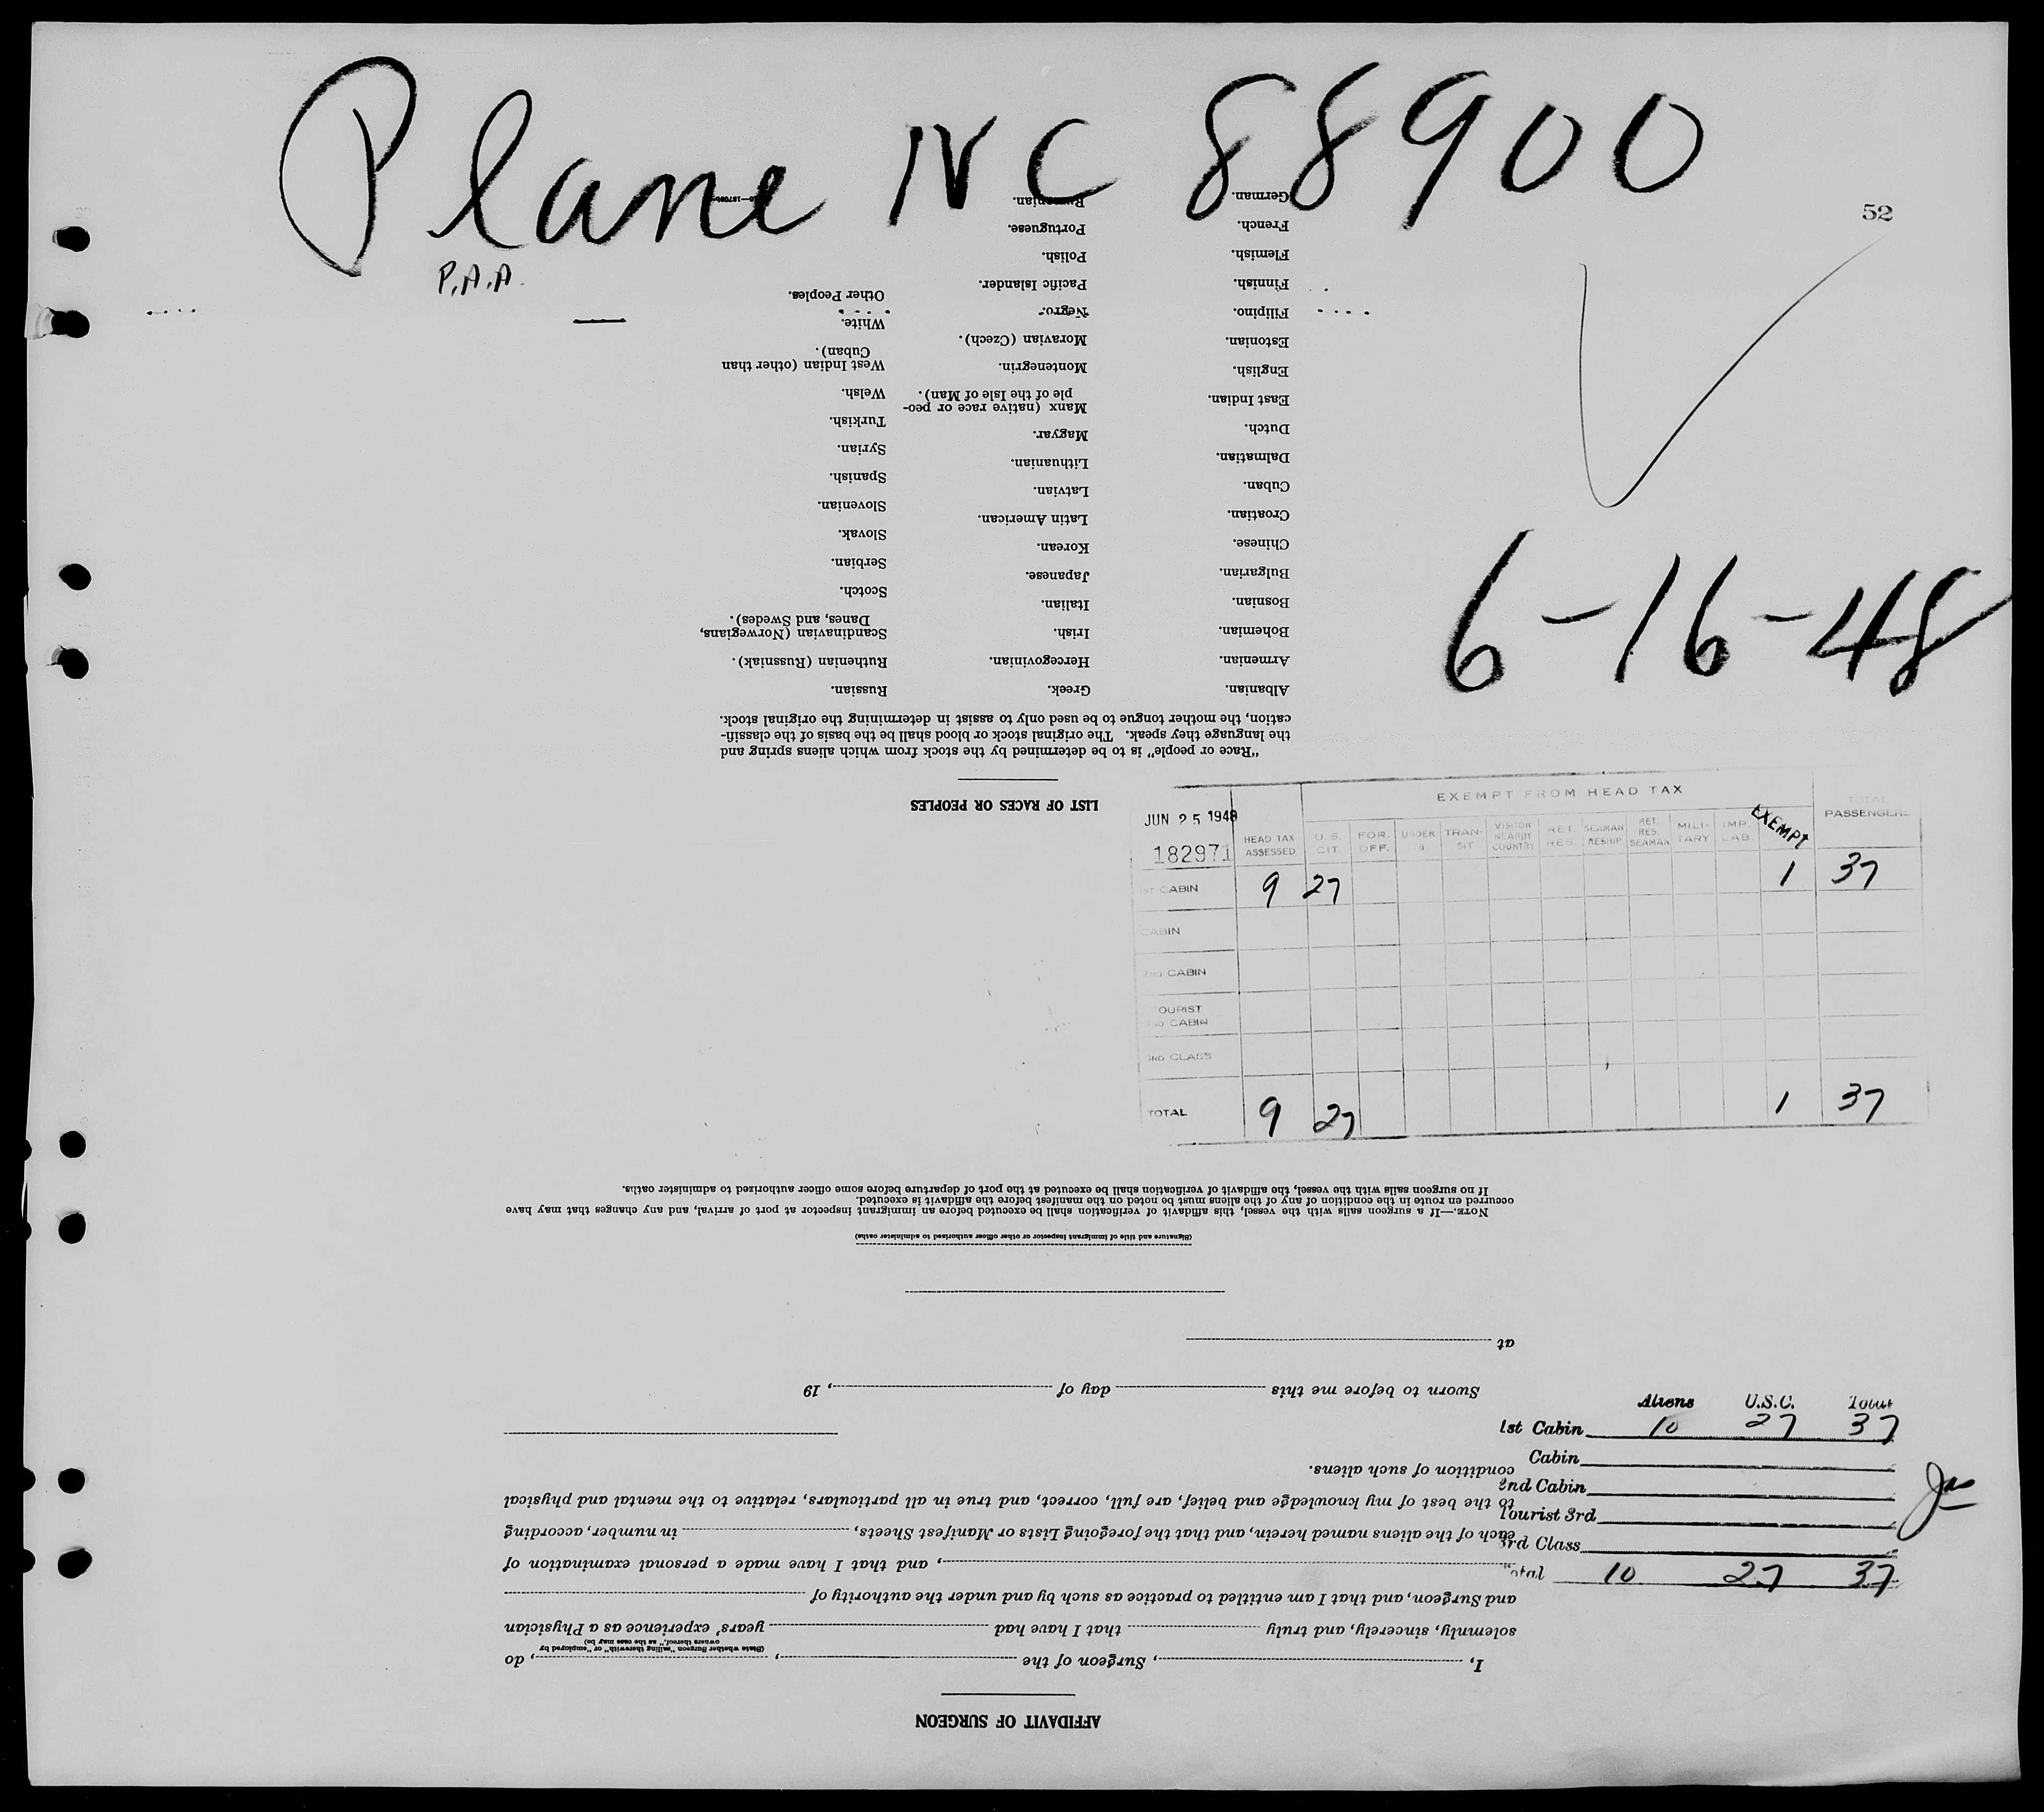 Plane NC 88900
52
P.A.A.
6-16-48
JUN 25 1948
182971
EXEMPT FROM HEAD TAX
HEAD TAX ASSESSED
U.S. CIT.
FOR. OFF.
UNDER
TRAN-SIT
VISITOR NEARBY COUNTRY
RET. RES.
SEAMAN RESHIP
RET. RES. SEAMAN
MILI-TARY
IMP. LAB.
EXEMPT
TOTAL PASSENGERS
1ST CABIN 9 27 1 37
CABIN
2ND CABIN
TOURIST
CABIN
CLASS
TOTAL 9 27 1 37
Aliens U.S.C. Total
1st Cabin 10 27 37
Cabin
2nd Cabin
Tourist 3rd
3rd Class
Total 10 27 37
AFFIDAVIT OF SURGEON
I, , Surgeon of the , , do
(State whether Surgeon "sailing therewith" or "employed by
owners thereof," as the case may be)
solemnly, sincerely, and truly that I have had years' experience as a Physician
and Surgeon, and that I am entitled to practice as such by and under the authority of
, and that I have made a personal examination of
each of the aliens named herein, and that the foregoing Lists or Manifest Sheets, in number, according
to the best of my knowledge and belief, are full, correct, and true in all particulars, relative to the mental and physical
condition of such aliens.
Sworn to before me this day of , 19
at
(Signature and title of immigrant inspector or other officer authorized to administer oaths)
NOTE.—If a surgeon sails with the vessel, this affidavit of verification shall be executed before an immigrant inspector at port of arrival, and any changes that may have
occurred en route in the condition of any of the aliens must be noted on the manifest before the affidavit is executed.
If no surgeon sails with the vessel, the affidavit of verification shall be executed at the port of departure before some officer authorized to administer oaths.
LIST OF RACES OR PEOPLES
"Race or people" is to be determined by the stock from which aliens spring and
the language they speak. The original stock or blood shall be the basis of the classifi-
cation, the mother tongue to be used only to assist in determining the original stock.
Albanian.
Armenian.
Bohemian.
Bosnian.
Bulgarian.
Chinese.
Croatian.
Cuban.
Dalmatian.
Dutch.
East Indian.
English.
Estonian.
Filipino.
Finnish.
Flemish.
French.
German.
Greek.
Hercegovinian.
Irish.
Italian.
Japanese.
Korean.
Latin American.
Latvian.
Lithuanian.
Magyar.
Manx (native race or peo-
ple of the Isle of Man).
Montenegrin.
Moravian (Czech).
Negro.
Pacific Islander.
Polish.
Portuguese.
Rumanian.
Russian.
Ruthenian (Russniak).
Scandinavian (Norwegians,
Danes, and Swedes).
Scotch.
Serbian.
Slovak.
Slovenian.
Spanish.
Syrian.
Turkish.
Welsh.
West Indian (other than
Cuban).
White.
Other Peoples.